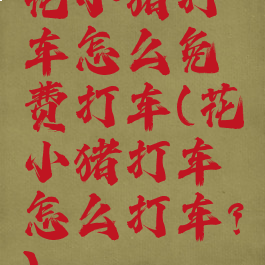 花小猪打
车怎么免
费打车(花
小猪打车
怎么打车?
)